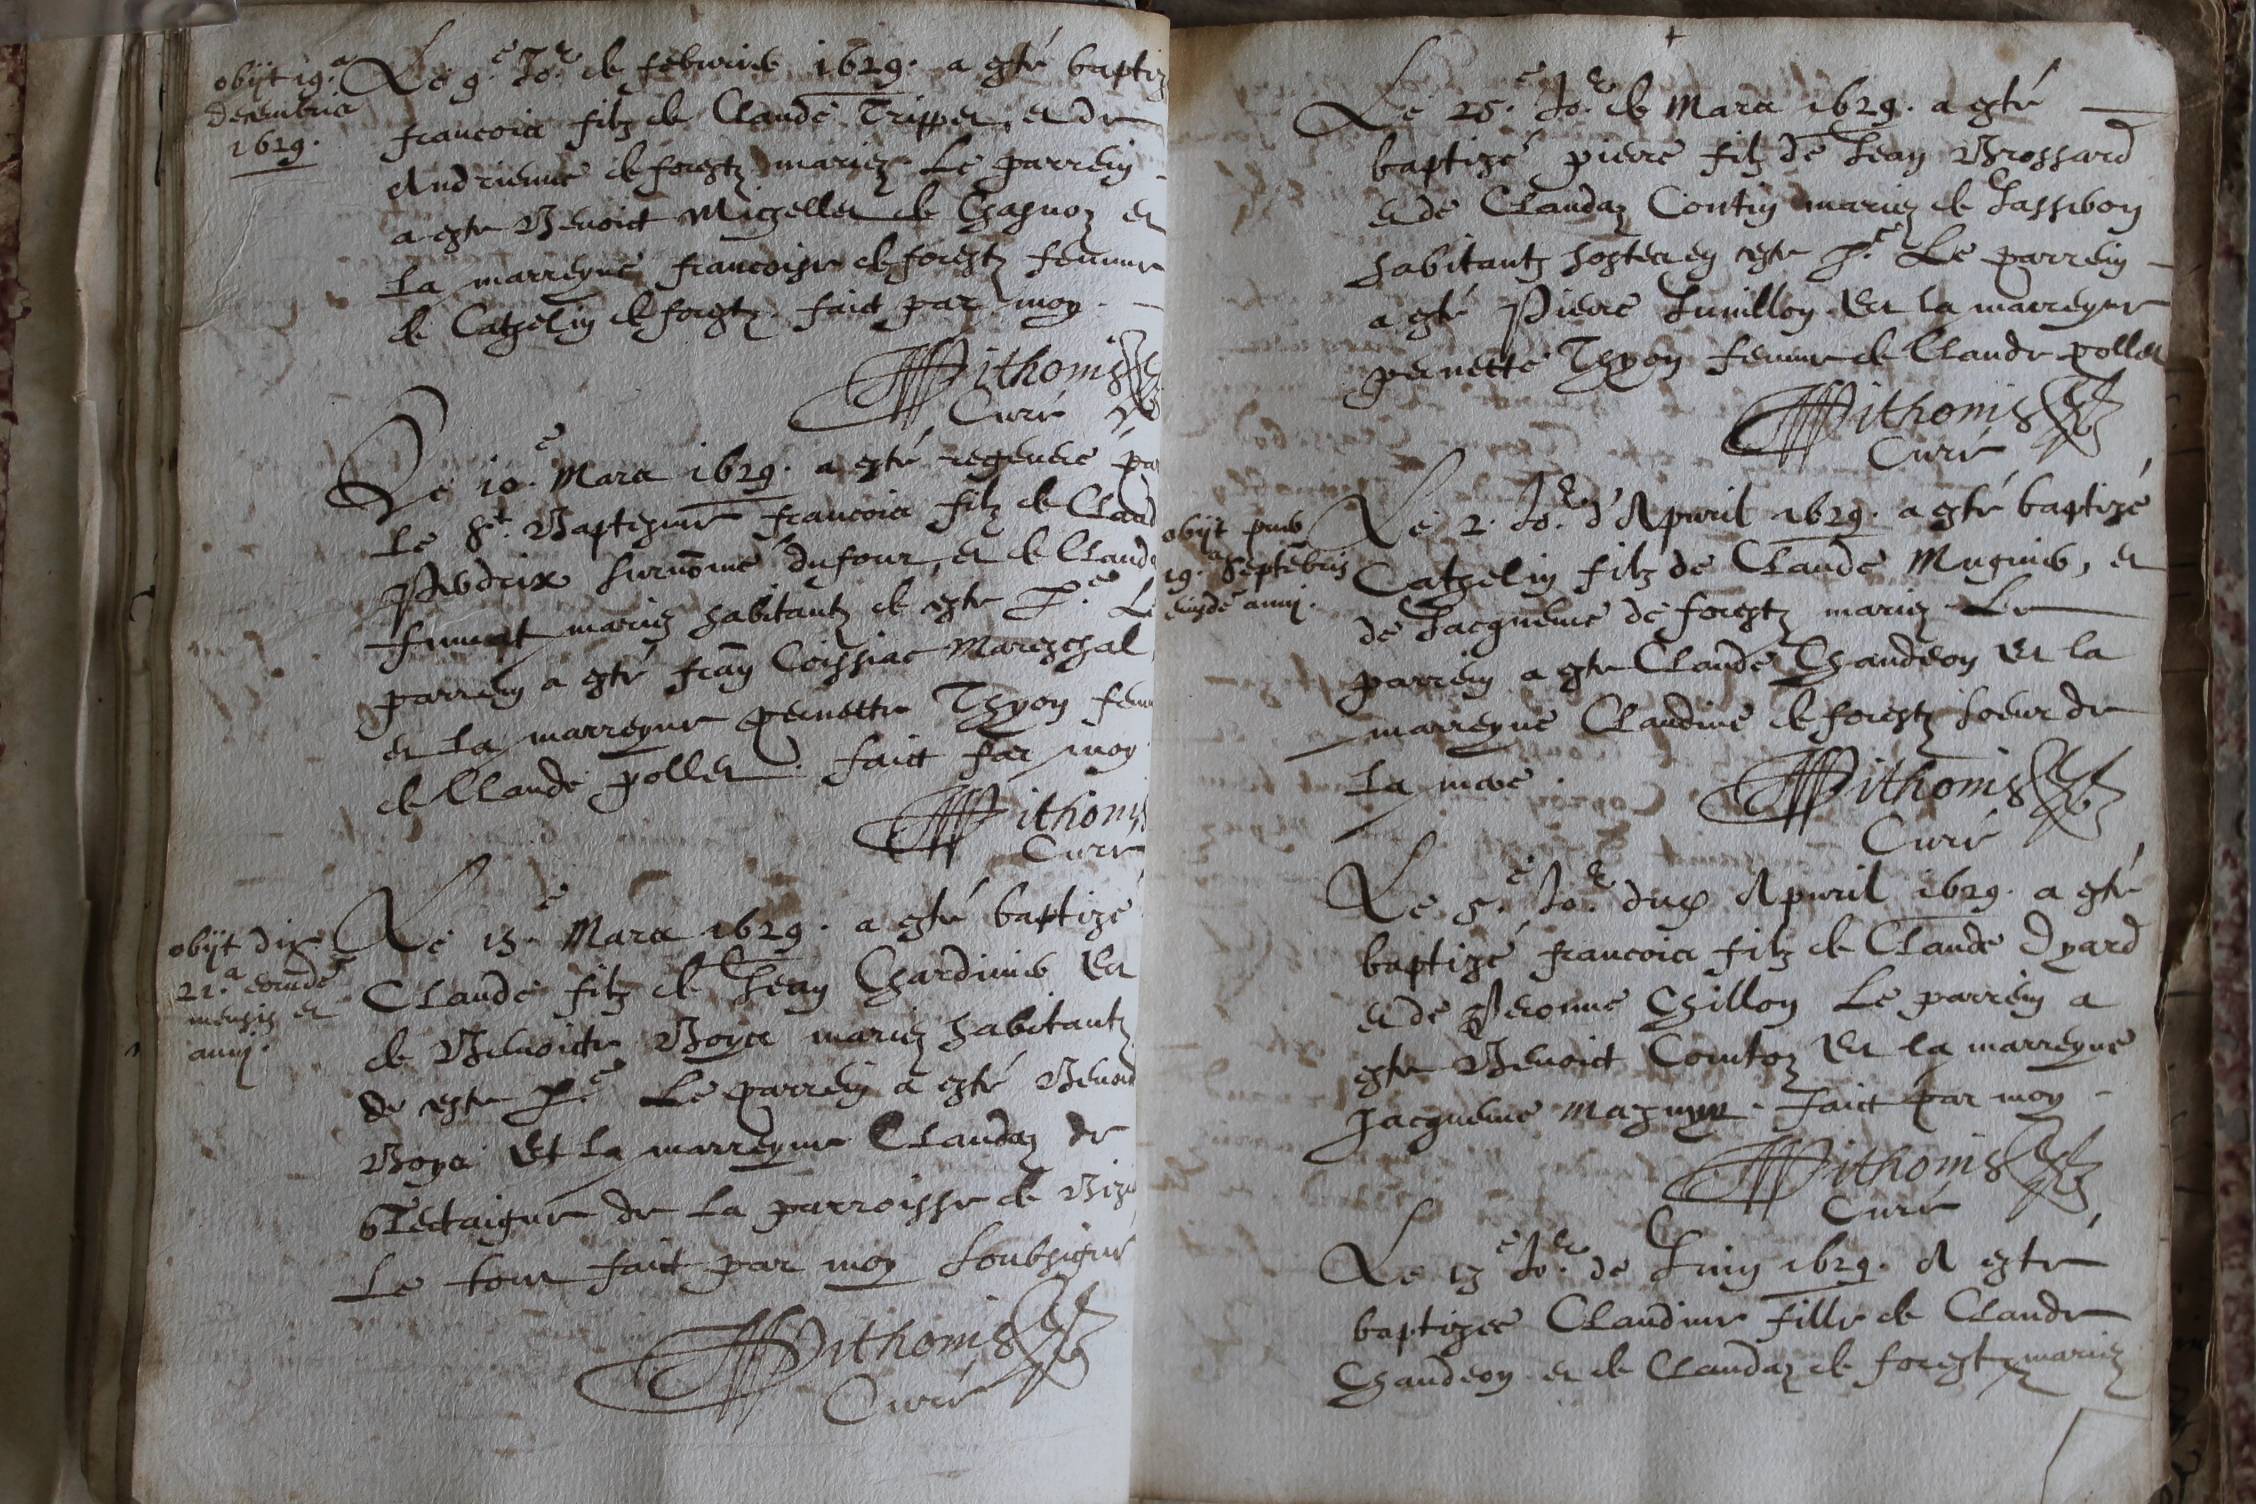 obijt 19.a
decembris
1629.
Le 9.e Jo.r de febvrier 1629. a esté baptiz
francois filz de Claude Trippet, et de
Andrienne de forestz mariez. Le parrein
a este Benoict Michellet de Chasnoz et
la marreyne francoise de forestz femme
de Cathelin de forestz. faict par moy.
Pithonis
Curé
Le 10.e Mars 1629. a esté regeneré par
le St. Baptesme francois filz de Claud
Perdrix surnõmé dufour, et de Claud
mariez habitantz de ceste P.e Le
parrein a esté frãn Coissiac Mareschal
et la marreyne pernette Thyon fem
de Claude pollet. faict par moy
Pithonis
Curé
obijt die
21.a eiusdẽ
mensis et
anni.
Le 13.e Mars 1629. a esté baptizé
Claude filz de Jean Chardinier Et
de Benoicte Boyer mariez habitantz
de ceste P.e Le parrein a esté Benoict
Boyer Et la marreyne Claudaz de
de la parroisse de
Le tout faict par moy soubsigné
Pithonis
Curé
Le 25.e Jo.r de Mars 1629. a esté
baptizé pierre filz de Jean Brossard
et de Claudaz Contin mariez de
habitantz hostes en ceste P.e Le parrein
a esté Pierre Juvillon Et la marreyne
pernette Thyon femme de Claude pollet
Pithonis
Curé
obijt puer
19.a Septẽbris
eiusdẽ anni.
Le 2. Jo.r d'Apvril 1629. a esté baptizé
Cathelin filz de Claude Mugnier, et
de Jacqueme de forestz mariez. Le
parrein a este Claude Chandeon Et la
marreyne Claudine de forestz soeur de
la mere.
Pithonis
Curé
Le 5.e Jo.r dud Apvril 1629. a esté
baptizé francois filz de Claude Dyard
et de Peronne Chillon Le parrein a
este Benoict Comtoz Et la marreyne
Jacqueme. faict par moy
Pithonis
Curé
Le 13.e Jo.r de Juin 1629. A este
baptizee Claudine fille de Claude
Chandeon et de Claudaz de forestz mariez